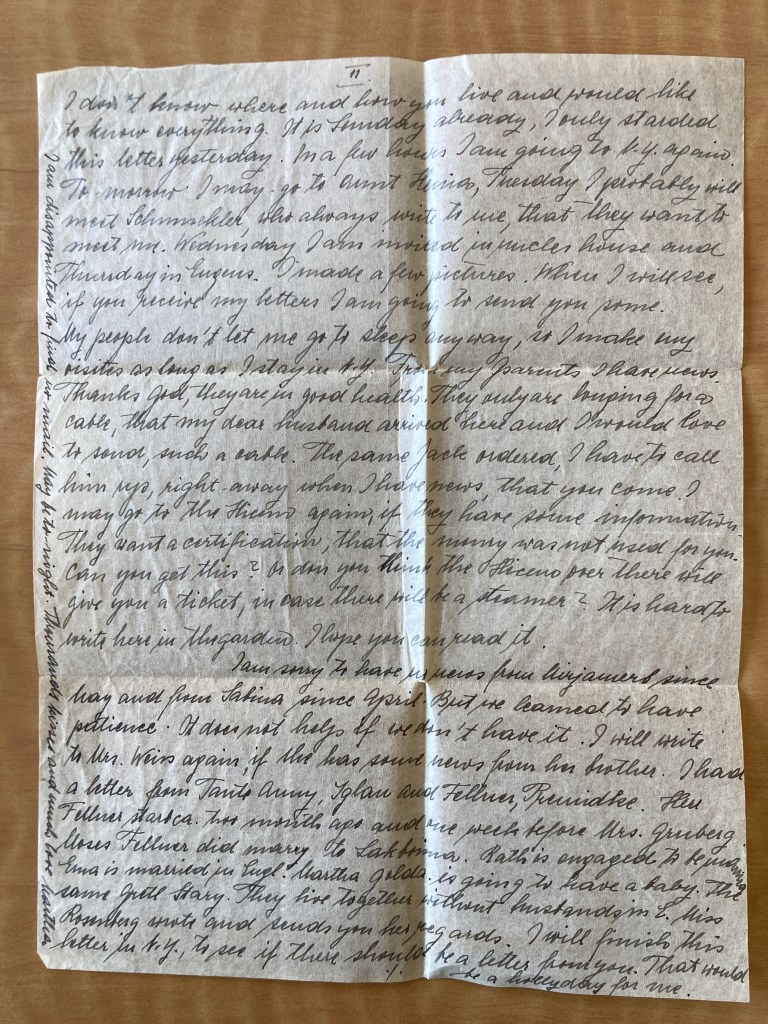 II.
I don't know where and how you live and would like
to know everything. It is Sonday already, I only starded
this letter yesterday. In a few hours I am going to N.Y. again.
To-morrow I may go to aunt Heinas, Tuesday I probably will
meet Schmuckler, who always write to me, that they want to
meet me. Wednesday I am invited in uncles house and
Thursday in Eugens. I made a few pictures. When I will see,
if you receive my letters I am going to send you some.
My people don't let me go to sleep anyway, so I make my
visites as long as I stay in N.Y. From my parents I have news.
Thanks God, they are in good health. They only are longing for a
cable, that my dear husband arrived here and I would love
to send, such a cable. The same Jack ordered, I have to call
him up, right away when I have news, that you come. I
may go to the Hicem again, if they have some information.
They want a certification, that the money was not used for you.
Can you get this? Or don you think the Hicem over there will
give you a ticket, in case there will be a steamer? It is hard to
write here in the garden. I hope you can read it.
I am sorry to have no news from since
May and from Sabina since April. But we learned to have
patience. It does not help if we don't have it. I will write
to Mrs. Weiss again, if she has some news from her brother. I had
a letter from Tante Anny, Iglau and Fellner, Herr
Fellner two month ago and one week before Mrs. Gruberg.
Moses Fellner did marry to . Kath is engaged to be
Erna is married in Engl. Martha Golda is going to have a baby. The
same Gretl Stary. They live together without husbands in L. Miss
Rosenberg wrote and sends you her regards. I will finish this
letter in N.Y., to see if there should be a letter from you. That would
be a hollyday for me.
./.
I am disappointed to find no mail. May be to-night. Thousands kisses and much love